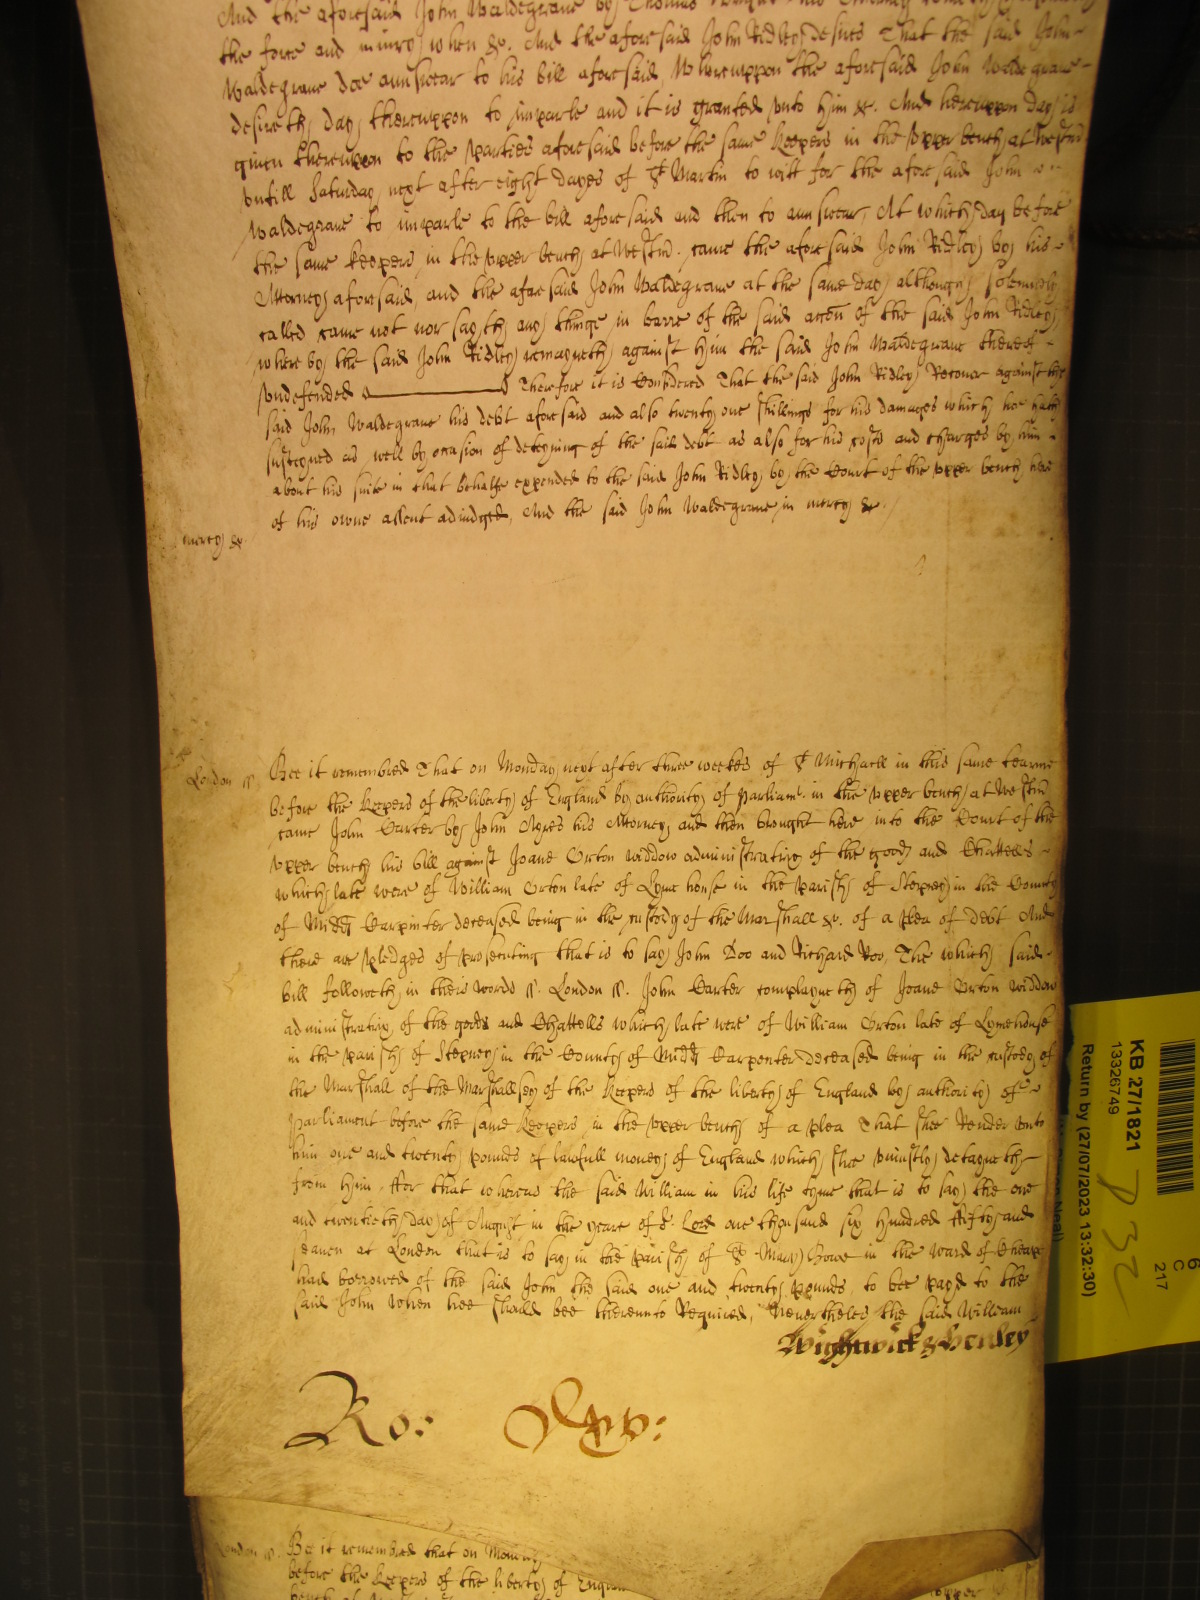 And the aforesaid John Waldegrave by Thomas his Attorney
the force and iniury when &c. And the aforesaid John Ridley desires That the said John
Waldegrave doe aunswear to his bill aforesaid Whereuppon the aforesaid John Waldegrave
desireth day thereuppon to imparle and it is granted vnto him &c. And hereuppon day is
given thereuppon to the parties aforesaid before the same Keepers in the vpper bench at Westm
vntill Saturday next after eight dayes of St Martin to witt for the aforesaid John
Waldegrave to imparle to the bill aforesaid and then to aunswear, At which day before
the same keepers in the vpper bench at Westm. came the aforesaid John Ridley by his
Attorney aforesaid, and the aforesaid John Waldegrave at the same day althoughe solempnly
called came not nor sayth any thinge in barre of the said accon of the said John Ridley
whereby the said John Ridley remayneth against him the said John Waldegrave thereof
vndefended Therefore it is Considered That the said John Ridley Recover against the
said John Waldegrave his debt aforesaid and also twenty one shillings for his damages which hee hath
susteyned as well by occasion of deteyning of the said debt as also for his costs and charges by him
about his suite in that behalfe expended to the said John Ridley by the Court of the vpper bench here
of his owne assent adiudged, And the said John Waldegrave in mercy &c.
mercy &c.
London ss. Bee it remembred That on Monday next after three weekes of St Michaell in this same tearme
before the Keepers of the liberty of England by authority of Parliamt. in the vpper bench at Westm
came John Carter by John Ayres his Attorney and then brought here into the Court of the
vpper bench his bill against Joane Orton widdow administratrix of the goods and Chattells
which late were of William Orton late of Lyme house in the parish of Stepney in the County
of Midd Carpinter deceased being in the custody of the Marshall &c. of a plea of debt And
there are pledges of prosecuting that is to say John Doo and Richard Roo, The which said
bill followeth in theis words ss. London ss. John Carter complayneth of Joane Orton widdow
administratrix of the goods and Chattells which late were of William Orton late of Lymehouse
in the parish of Stepney in the County of Midd Carpenter deceased being in the custody of
the Marshall of the Marshallsey of the Keepers of the liberty of England by authority of
Parliament before the same Keepers in the vpper bench of a plea That shee Render vnto
him one and twenty pounds of lawfull money of England which shee vniustly detayneth
from him. ffor that whereas the said William in his life tyme that is to say the one
and twentieth day of August in the yeare of or. Lord one thousand six hundred ffifty and
seaven at London that is to say in the parish of St. Mary Bowe in the ward of Cheape
had borrowed of the said John the said one and twenty pounds to bee payd to the
said John when hee should bee thereunto Required, Neverthelesse the said William
Wightwick & Henley
Ro:
London ss. Bee it remembred that on Monday
before the Keepers of the liberty of England
KB 27/1821
13326749
Return by (27/07/2023 13:32:30)
6
C
217
P 32